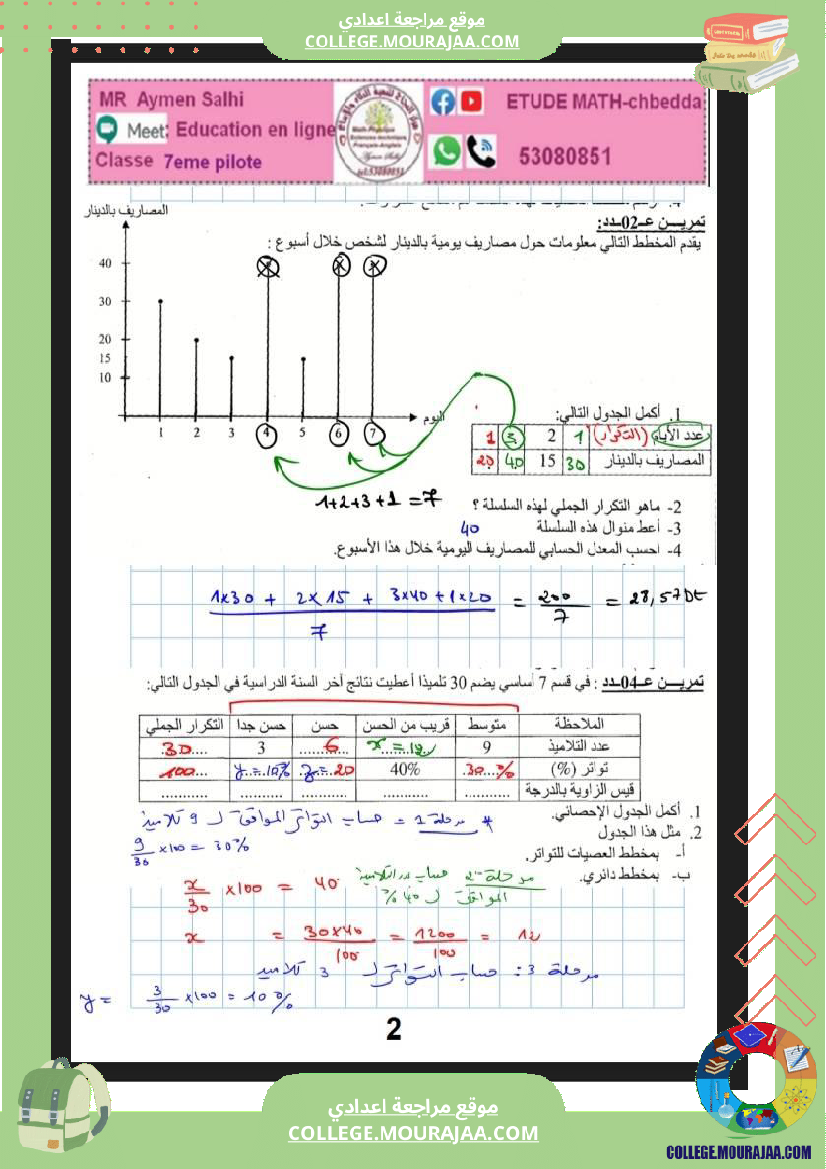 موقع مراجعة اعدادي
COLLEGE.MOURAJAA.COM
MR Aymen Salhi
Meet: Education en ligne
Classe 7eme pilote
ETUDE MATH-chbedda
53080851
تمريـــن عـ02ـدد:
يقدم المخطط التالي معلومات حول مصاريف يومية بالدينار لشخص خلال أسبوع :
المصاريف بالدينار
40
30
20
15
10
1 2 3 4 5 6 7
اليوم
1. أكمل الجدول التالي:
عدد الأيام (التكرار) 1 2 3 1
المصاريف بالدينار 30 15 40 20
2- ماهو التكرار الجملي لهذه السلسلة ؟ 1+2+3+1 = 7
3- أعط منوال هذه السلسلة 40
4- احسب المعدل الحسابي للمصاريف اليومية خلال هذا الأسبوع.
1x30 + 2x15 + 3x40 + 1x20 / 7 = 200 / 7 = 28,57 Dt
تمريـــن عـ04ـدد : في قسم 7 أساسي يضم 30 تلميذا أعطيت نتائج آخر السنة الدراسية في الجدول التالي:
الملاحظة متوسط قريب من الحسن حسن حسن جدا التكرار الجملي
عدد التلاميذ 9 x = 12 6 3 30
تواتر (%) 30% 40% z = 20 y = 10% 100
قيس الزاوية بالدرجة
1. أكمل الجدول الإحصائي.
* مرحلة 1 = حساب التواتر الموافق لـ 9 تلاميذ
2. مثل هذا الجدول
9/30 x100 = 30%
أ- بمخطط العصيات للتواتر.
ب- بمخطط دائري.
مرحلة 2
الموافق لـ 40 %
x/30 x100 = 40
x = 30x40 / 100 = 1200 / 100 = 12
مرحلة 3 : حساب التواتر لـ 3 تلاميذ
y = 3/30 x100 = 10 %
2
موقع مراجعة اعدادي
COLLEGE.MOURAJAA.COM
COLLEGE.MOURAJAA.COM